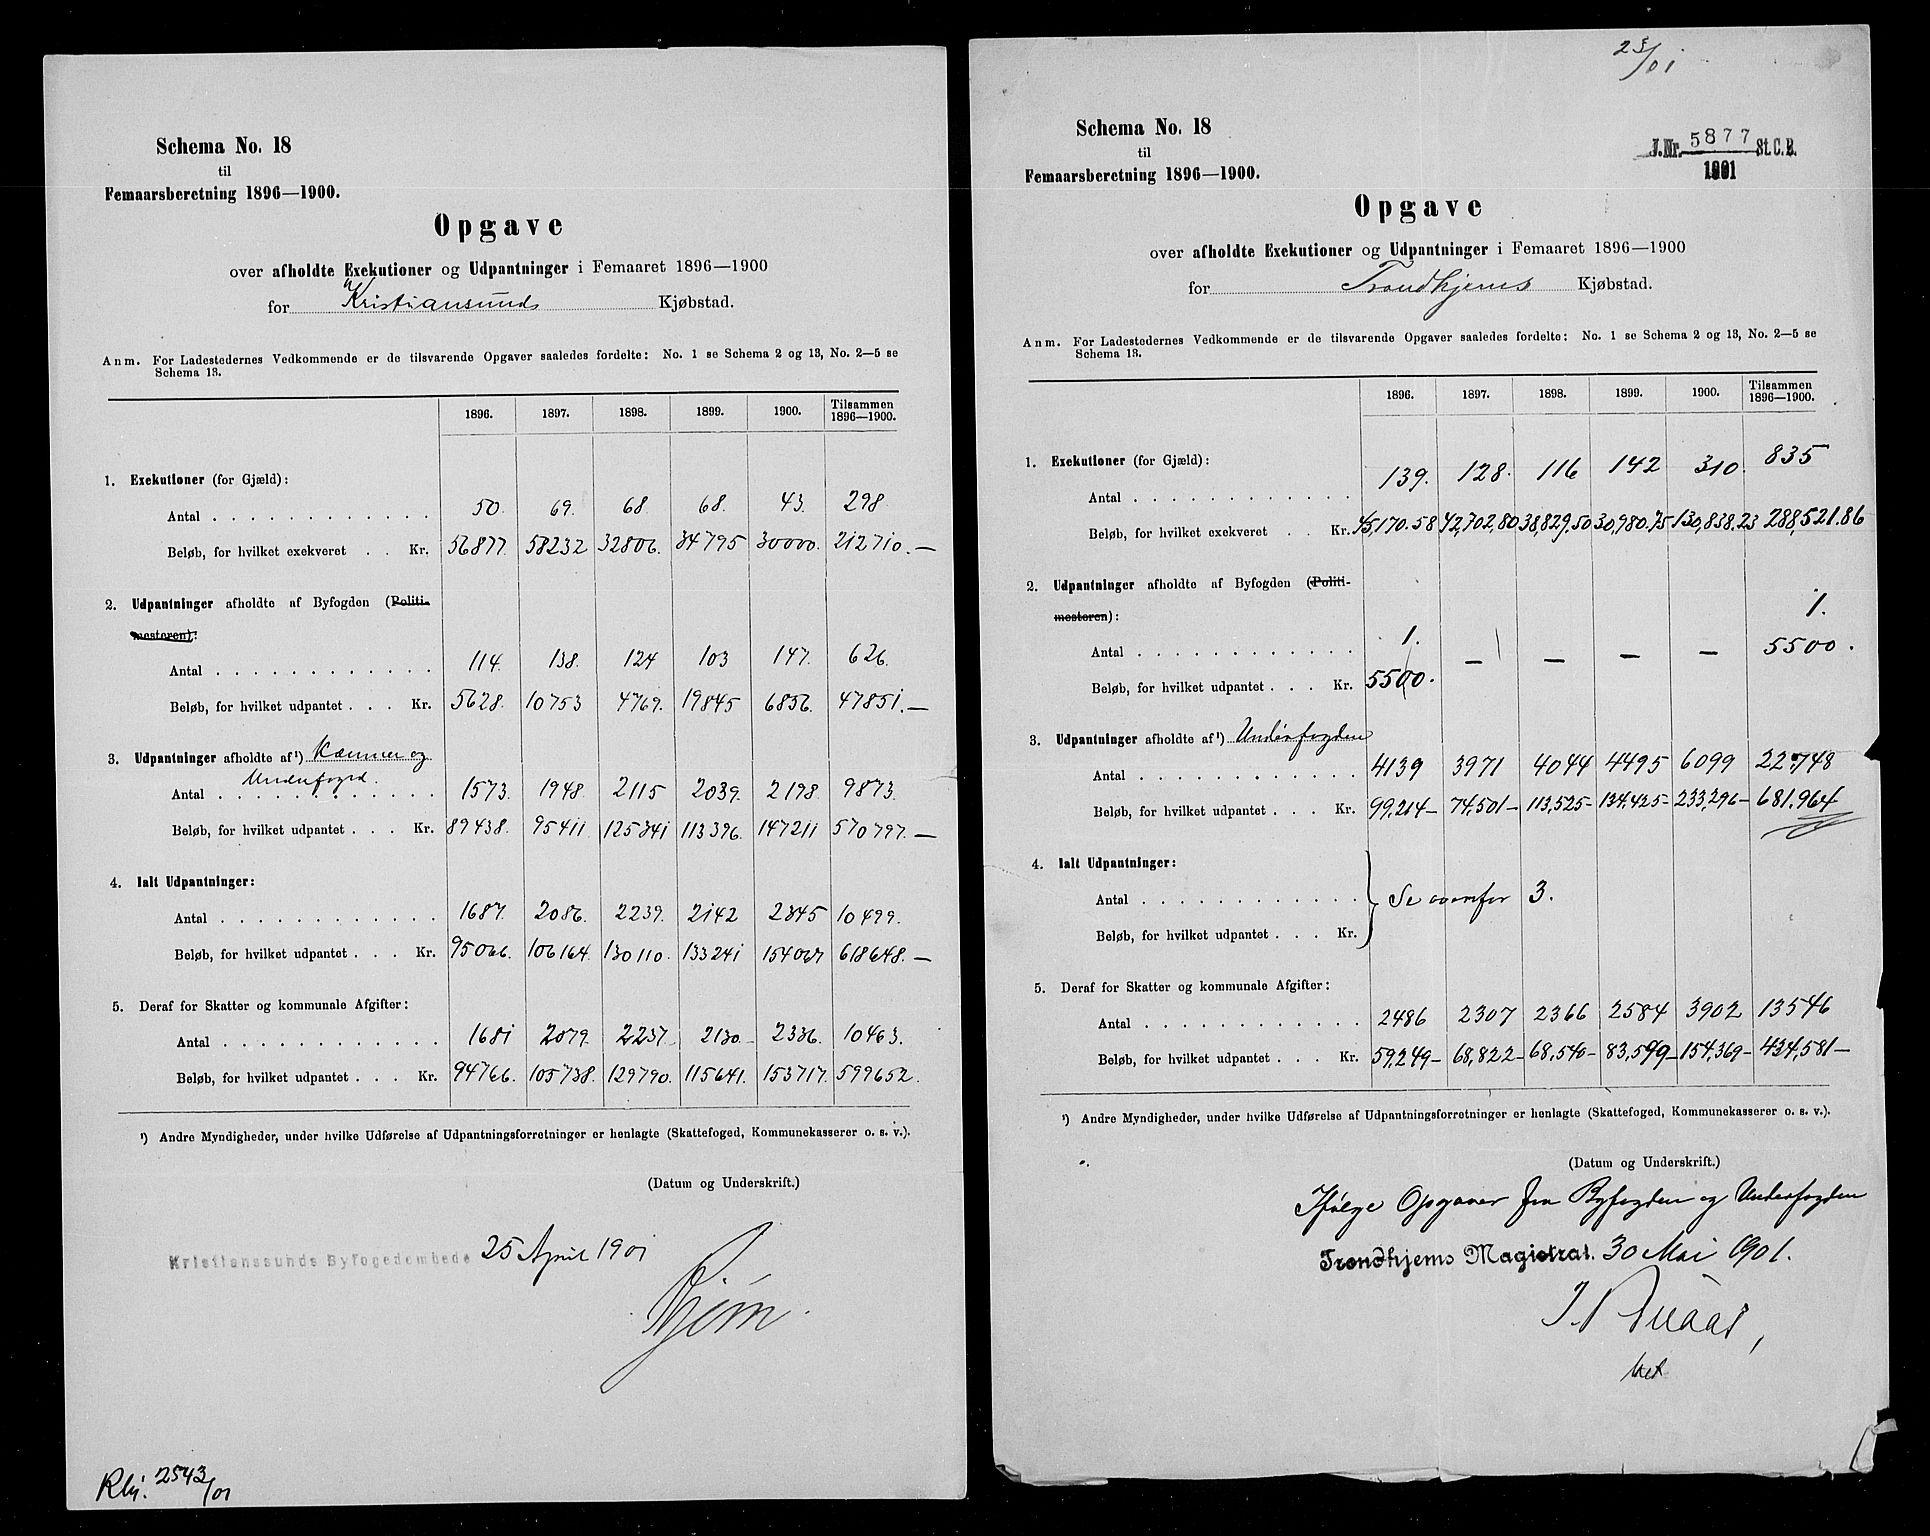 Schema No. 18
til
Femaarsberetning 1896—1900.
Opgave
over afholdte Exekutioner og Udpantninger i Femaaret 1896—1900
for Kristiansunds Kjøbstad.
Anm. For Ladestedernes Vedkommende er de tilsvarende Opgaver saaledes fordelte: No. 1 se Schema 2 og 13, No. 2—5 se
Schema 13.
1896. 1897. 1898. 1899. 1900. Tilsammen 1896—1900.
1. Exekutioner (for Gjæld):
Antal 50. 69. 68. 68. 43. 298.
Beløb, for hvilket exekveret . . Kr. 56877. 58232 32806. 34795 30000. 212710.—
2. Udpantninger afholdte af Byfogden (Politi-
mesteren):
Antal 114. 138. 124 103 147. 626.
Beløb, for hvilket udpantet . . . Kr. 5628. 10753 4769. 19845 6856. 47851.—
3. Udpantninger afholdte af¹) Kæmner og
Underfoged.
Antal 1573. 1948. 2115 2039. 2198. 9873.
Beløb, for hvilket udpantet . . . Kr. 89438. 95411. 125341 113396. 147211 570797.—
4. Ialt Udpantninger:
Antal 1687. 2086. 2239. 2142 2345 10499.
Beløb, for hvilket udpantet . . . Kr. 95066. 106164. 130110. 133241 154067 618648.—
5. Deraf for Skatter og kommunale Afgifter:
Antal 1681 2079. 2237. 2130. 2336. 10463.
Beløb, for hvilket udpantet . . . Kr. 94766. 105738. 129790. 115641. 153717. 599652.
¹) Andre Myndigheder, under hvilke Udførelse af Udpantningsforretninger er henlagte (Skattefoged, Kommunekasserer o. s. v.).
(Datum og Underskrift.)
Kristianssunds Byfogedembede 25 April 1901
2543/01
23/01
Schema No. 18
til
Femaarsberetning 1896—1900.
J.Nr. 5877 St.C.B.
1901
Opgave
over afholdte Exekutioner og Udpantninger i Femaaret 1896—1900
for Trondhjems Kjøbstad.
Anm. For Ladestedernes Vedkommende er de tilsvarende Opgaver saaledes fordelte: No. 1 se Schema 2 og 13, No. 2—5 se
Schema 13.
1896. 1897. 1898. 1899. 1900. Tilsammen 1896—1900.
1. Exekutioner (for Gjæld):
Antal 139. 128. 116 142 310. 835
Beløb, for hvilket exekveret . . Kr. 45,170.58 42,702,80 38,829.50 30,980.75 130,838.23 288,521.86
2. Udpantninger afholdte af Byfogden (Politi-
mesteren):
Antal 1. — — — — 1.
Beløb, for hvilket udpantet . . . Kr. 5500. 5500.
3. Udpantninger afholdte af¹) Underfogden
Antal 4139 3971 4044 4495 6099 22748
Beløb, for hvilket udpantet . . . Kr. 99,214— 74,501— 113,525— 134,425— 233,296— 681,964
4. Ialt Udpantninger:
Antal
Se ovenfor 3.
Beløb, for hvilket udpantet . . . Kr.
5. Deraf for Skatter og kommunale Afgifter:
Antal 2486 2307 2366 2584 3902 13546
Beløb, for hvilket udpantet . . . Kr. 59,249— 68,822— 68,540— 83,599— 154,369— 434,581—
¹) Andre Myndigheder, under hvilke Udførelse af Udpantningsforretninger er henlagte (Skattefoged, Kommunekasserer o. s. v.).
(Datum og Underskrift.)
Ifølge Opgaver fra Byfogden og Underfogden
Trondhjems Magistrat. 30 Mai 1901.